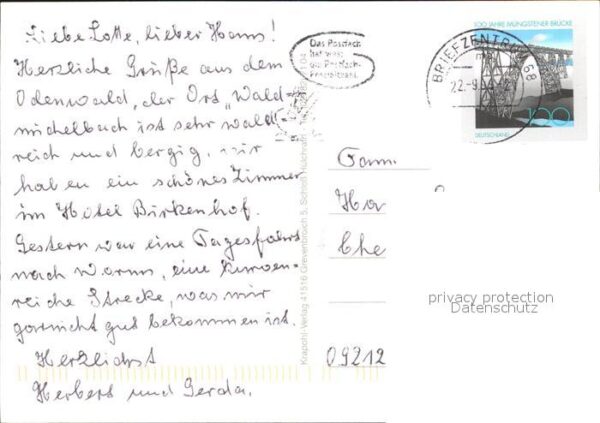 Liebe Lotte, lieber Hans!
Herzliche Grüße aus dem
Odenwald, der Ort „Wald-
michelbach ist sehr wald-
reich und bergig, wir
haben ein schönes Zimmer
im Hotel Birkenhof.
Gestern war eine Tagesfahrt
nach Worms, eine kurven-
reiche Strecke, was mir
garnicht gut bekommen ist.
Herzlichst
Herbert und Gerda.
Das Postfach
hat was:
die Postfach-
Krapohl-Verlag 41516 Grevenbroich 5, Schloß Hülchrath
BRIEFZENTRUM 68
22.-9.
100 JAHRE MÜNGSTENER BRÜCKE
DEUTSCHLAND
100
Fam.
Ha
Che
09212
privacy protection
Datenschutz